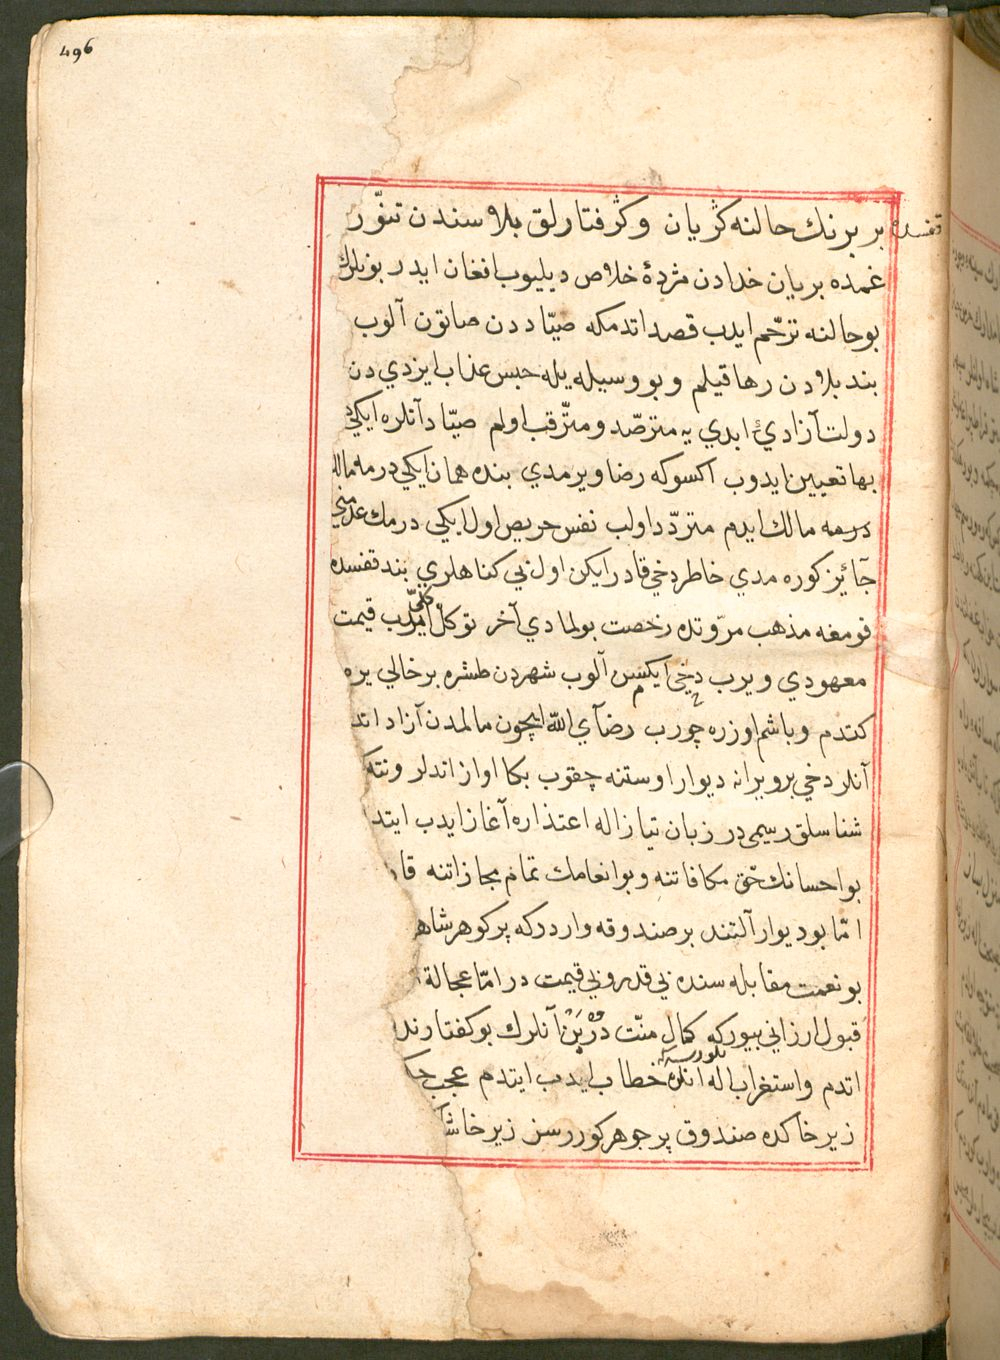 496
قفسده
بر برنك حالنه كريان و كرفتارلق بلاسندن تنوّر
غمده بريان خدادن مژدهٔ خلاص ديليوب افغان ايدر بونلرك
بو حالنه ترحّم ايدب قصد اتدمكه صيّاددن صاتون آلوب
بند بلادن رها قيلم و بو وسيله يله حبس عذاب ايزدي دن
دولت آزادئ ابدي يه مترصّد و مترّقب اولم صيّاد آنلره ايكي
بها تعيين ايدوب اكسوكه رضا ويرمدي بنده همان ايكي درمه مالك
درمه مالك ايدم متردّد اولب نفس حريص اول ايكي درمك عدمني
جآئز كوره مدي خاطر دخي قادر ايكن اول بي كناهلري بند قفسده
قومغه مذهب مرّوتده رخصت بولمادي آخر توكّل كلّي ايدب قيمت
معهودي ويرب دخي ايكسن آلوب شهردن طشره بر خالي يره
كتدم و باشم اوزره چورب رضآي اللّه ايچون مالمدن آزاد اتد
آنلر دخي بر ويرانه ديوار اوستنه چقوب بكا اواز اتدلر ونته
شناسلق رسيمي در زبان نيازاله اعتذاره آغاز ايدب ايتد
بو احسانك حّق مكافاتنه و بو انعامك تمام مجازاتنه قا
امّا بو ديوار آلتنده بر صندوقه واردركه پر كوهر شاه
بو نعمت مقابله سنده بي قدر و بي قيمت در امّا عجالة
قبول ارزاني بيوركه كمال منّت دربن آنلرك بو كفتارند
اتدم واستغراب اله انلره خطاب ايدب ايتدم عجب
زير خاكده صندوق پر جوهر كوررسز زير خاشا